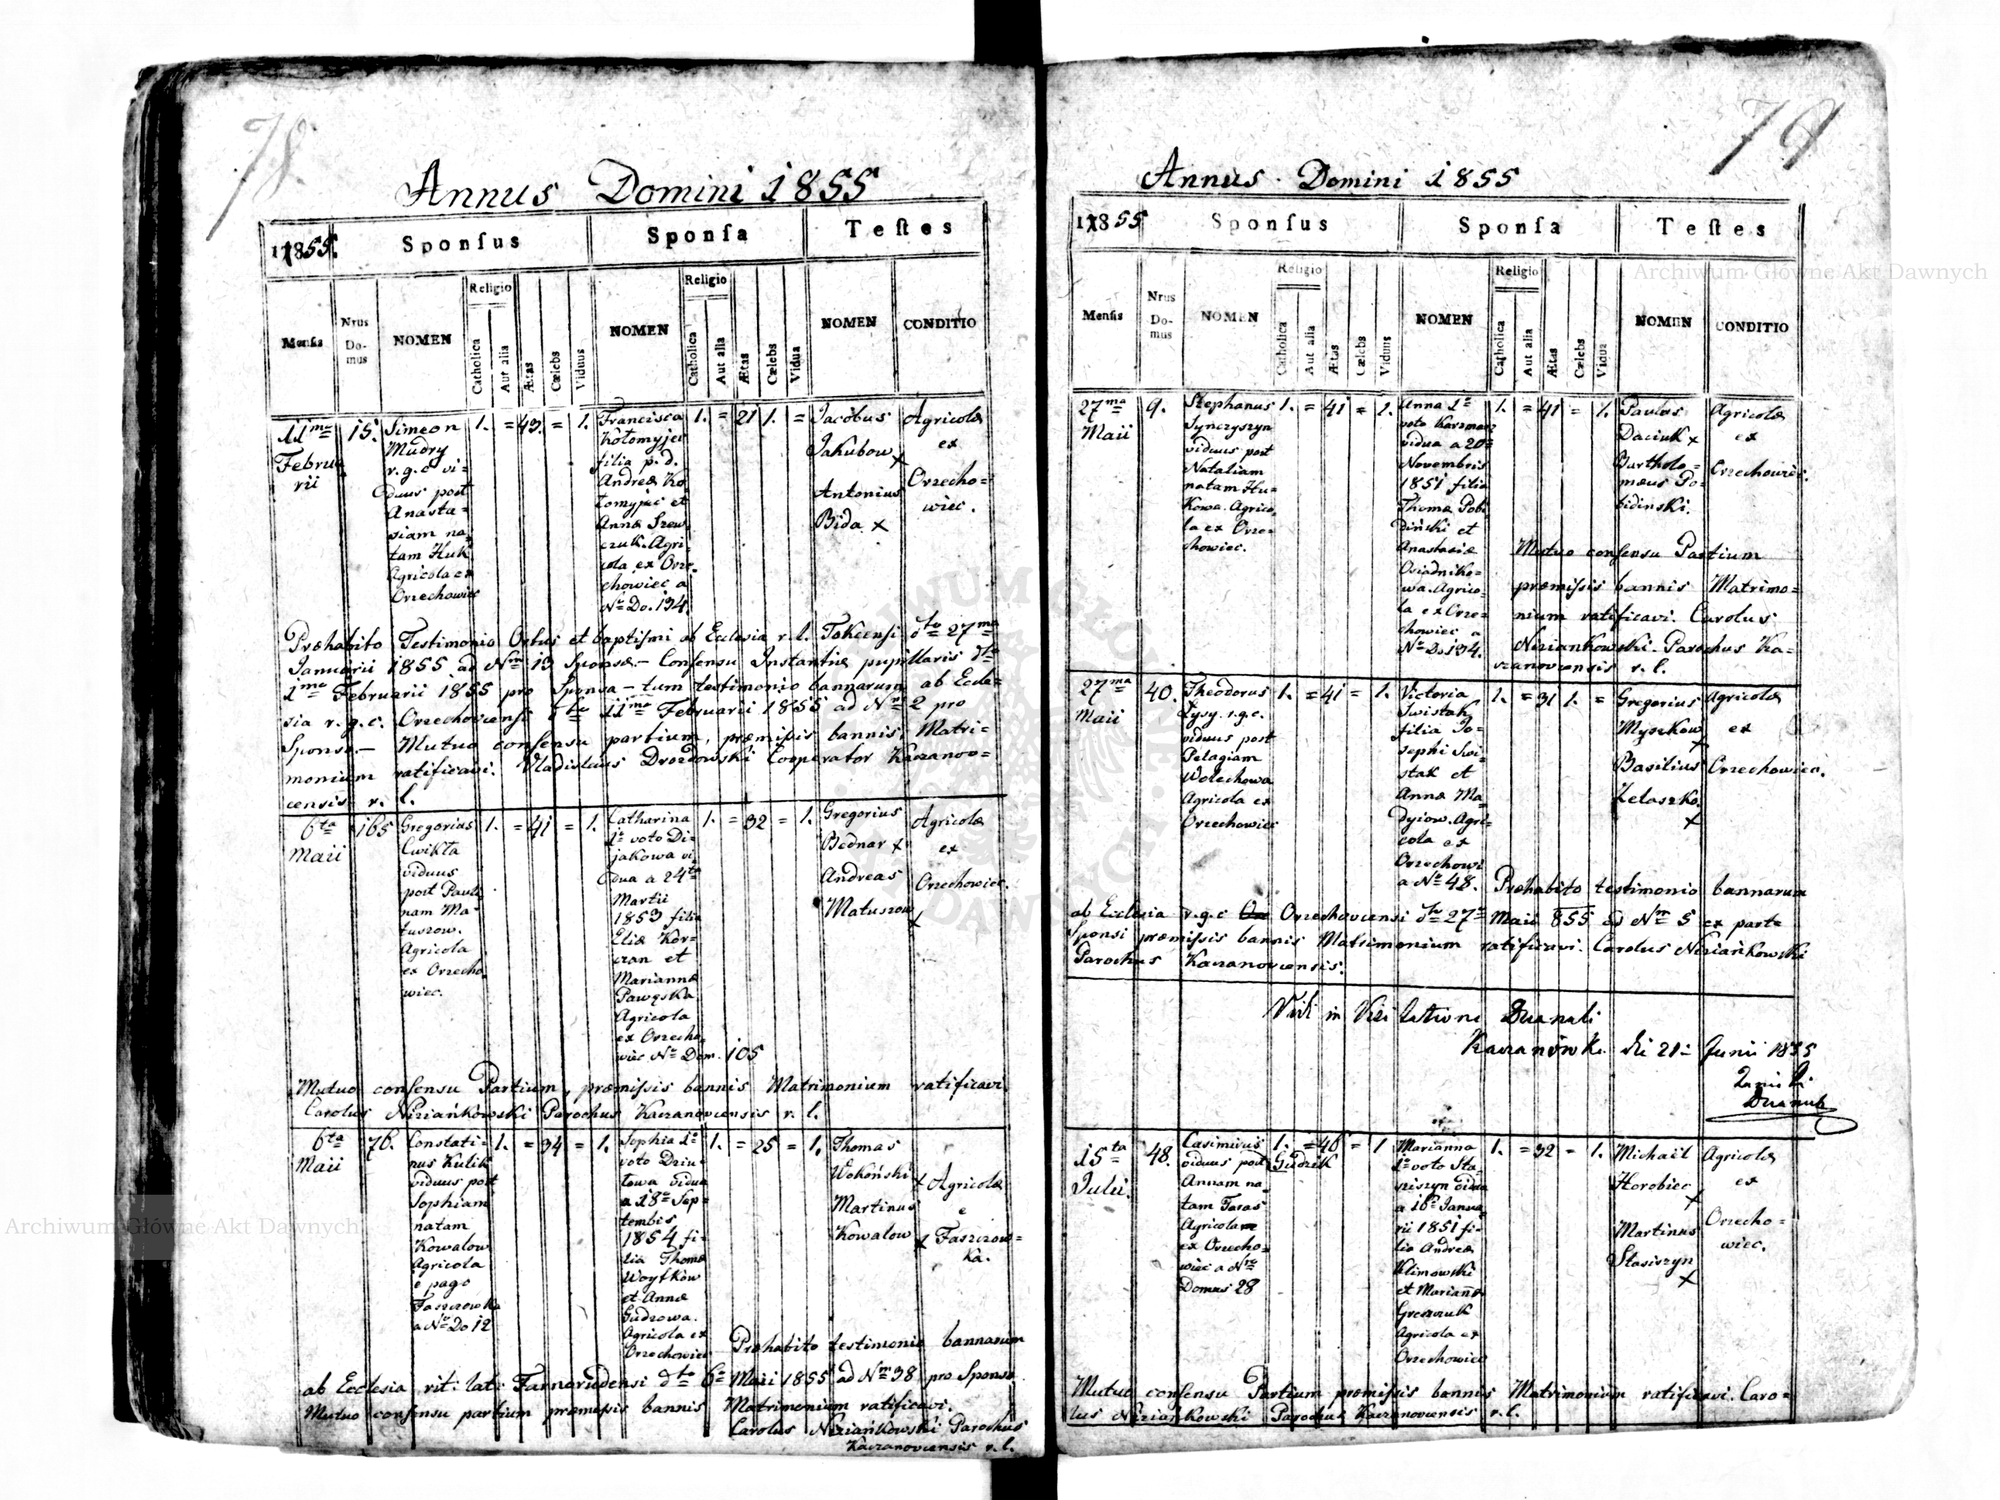 78.
Annus Domini 1855
11855.
Sponſus
Sponſa
Teſtes
Menſis
Nrus
Do-
mus
NOMEN
Religio
Catholica
Aut alia
Ætas
Cœlebs
Viduus
NOMEN
Religio
Catholica
Aut alia
Ætas
Cœlebs
Vidua
NOMEN
CONDITIO
11ma
Februa
rii
15.
Simeon
Mudry
r.g.c vi-
duus post
Anasta-
siam na-
tam Huk
Agricola ex
Orzechowiec
1. = 43. = 1.
Francisca
Kołomyjec
filia p. d.
Andreæ Ko
łomyjec et
Annæ Szew
czuk. Agri-
cola ex Orze-
chowiec a
Nro Do. 134.
1. = 21 1. =
Jacobus
Jakubow x
Antonius
Bida x
Agricolæ
ex
Orzecho-
wiec.
Præhabito Testimonio Ortus et baptiſmi ab Ecclesia r. l. Tokcensi dto 27ma
Januarii 1855 ad Nrm 13 Sponsæ.- Consensu Instantiæ pupillaris dto
1ma Februarii 1855 pro Sponsa - tum testimonio bannorum ab Eccle-
sia r.g.c. Orzechovcensi dto 11ma Februarii 1855 ad Nrm 2 pro
Sponso.- Mutuo consensu partium, præmiſsis bannis, Matri-
monium ratificavi. Vladislaus Drozdowski Cooperator Kaczanov-
censis r. l.
6ta
Maii
165
Gregorius
Cwikła
viduus
post Pauli-
nam Ma-
tuszow.
Agricola
ex Orzecho
wiec.
1. = 41 = 1.
Catharina
1o voto Di-
jakowa vi-
dua a 24ta
Martii
1853 filia
Eliæ Kor-
czan et
Mariannæ
Pawęska
Agricola
ex Orzecho-
wiec Nro Dom. 105
1. = 32 = 1.
Gregorius
Bednar x
Andreas
Matuszow
x
Agricolæ
ex
Orzechowiec.
Mutuo consensu Partium, præmiſsis bannis Matrimonium ratificavi
Carolus Niziańkowski Parochus Kaczanovcensis r. l.
6ta
Maii
76.
Constati-
nus Kulik
viduus post
Sophiam
natam
Kowalow
Agricola
e pago
Faszczowka
a Nro Do 12
1. = 34 = 1.
Sophia 1o
voto Dziu-
towa vidua
a 18o Sep-
tembis
1854 fi-
lia Thomæ
Woytkow
et Annæ
Gudzowa.
Agricola ex
Orzechowiec
1. = 25 = 1.
Thomas
Wokoński x
Martinus
Kowalow x
Agricolæ
e
Faszczow-
ka.
Præhabito testimonio bannorum
ab Ecclesia rit: lat: Tarnorudensi dto 6o Maii 1855 ad Nrm 38 pro Sponso.
Mutuo consensu partium præmiſsis bannis Matrimonium ratificavi.
Carolus Niziańkowski Parochus
Kaczanovcensis r. l.
79
Annus Domini 1855
11855
Sponſus
Sponſa
Teſtes
Menſis
Nrus
Do-
mus
NOMEN
Religio
Catholica
Aut alia
Ætas
Cœlebs
Viduus
NOMEN
Religio
Catholica
Aut alia
Ætas
Cœlebs
Vidua
NOMEN
CONDITIO
27ma
Maii
9.
Stephanus
Synczyszyn
viduus post
Nataliam
natam Hu-
kowa. Agrico-
la ex Orze-
chowiec.
1. = 41 = 1.
Anna 1o
voto Karzmarz
vidua a 20o
Novembris
1851 filia
Thomæ Pobi
dinski et
Anastasiæ
Osiadniko-
wa. Agrico-
la ex Orze-
chowiec a
Nro Do 134.
1. = 41 = 1.
Paulus
Daciuk x
Bartholo-
mæus Po-
bidinski.
Agricolæ
ex
Orzechowiec.
Mutuo consensu Partium
præmiſsis bannis Matrimo-
nium ratificavi. Carolus
Niziankowski Parochus Ka-
czanovcensis r. l.
27ma
Maii
40.
Theodorus
Łysy. r.g.c.
viduus post
Pelagiam
Wolechowa
Agricola ex
Orzechowiec
1. = 41 = 1.
Victoria
Swistak
filia Jo-
sephi Swi-
stak et
Annæ Ma-
dyiow. Agri-
cola ex
Orzechowi
a Nro 48.
1. = 31 1. =
Gregorius
Myszkow
x
Basilius
Zelaszko.
x
Agricolæ
ex
Orzechowiec.
Præhabito testimonio bannorum
ab Ecclesia r.g.c Orzechovcensi dto 27o Maii 855 ad Nrm 5 ex parte
Sponsi præmiſsis bannis Matrimonium ratificavi. Carolus Niziańkowski
Parochus Kaczanovcensis.
Vidi in Visitatione Decanali
Kaczanówk. die 21o Junii 1855
Decanus
15ta
Julii.
48.
Casimirus
Gudzik
viduus post
Annam na-
tam Taras
Agricola
ex Orzecho-
wiec a Nro
Domus 28
1. = 46 = 1
Marianna
1o voto Sta-
siszyn vidua
a 16o Janua
rii 1851 fi-
lia Andreæ
Klimowski
et Mariannæ
Greszczuk
Agricola ex
Orzechowiec
1. = 32 = 1.
Michail
Horobiec
x
Martinus
Stasiszyn
x
Agricolæ
ex
Orzecho-
wiec.
Mutuo consensu Partium præmiſsis bannis Matrimonium ratificavi. Caro-
lus Niziańkowski Parochus Kaczanovcensis r. l.
Archiwum Główne Akt Dawnych
Archiwum Główne Akt Dawnych
ARCHIWUM GŁÓWNE AKT DAWNYCH